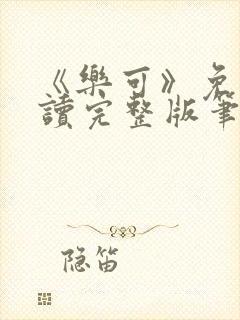 《樂可》免
讀完整版筆
隐笛